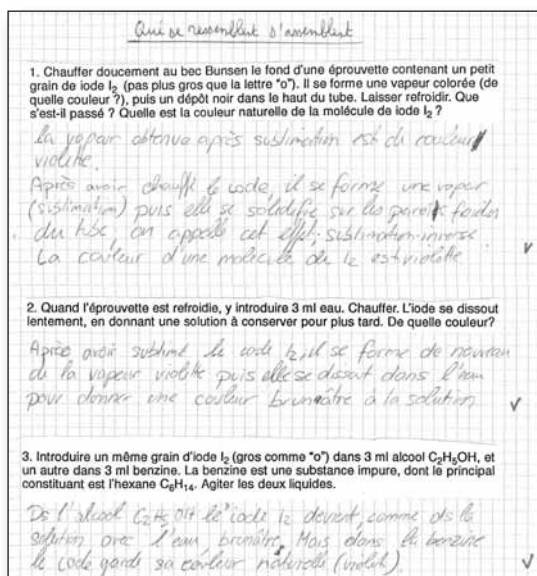 Qui se ressemblent s'assemblent
1. Chauffer doucement au bec Bunsen le fond d'une éprouvette contenant un petit
grain de iode I₂ (pas plus gros que la lettre "o"). Il se forme une vapeur colorée (de
quelle couleur ?), puis un dépôt noir dans le haut du tube. Laisser refroidir. Que
s'est-il passé ? Quelle est la couleur naturelle de la molécule de iode I₂ ?
La vapeur obtenue après sublimation est de couleur
violette.
Après avoir chauffé le iode, il se forme une vapeur
(sublimation) puis elle se solidifie sur les parois froides
du tube; on appelle cet effet; sublimation-inverse.
La couleur d'une molécule de I₂ est violette
2. Quand l'éprouvette est refroidie, y introduire 3 ml eau. Chauffer. L'iode se dissout
lentement, en donnant une solution à conserver pour plus tard. De quelle couleur?
Après avoir sublimé le iode I₂, il se forme de nouveau
de la vapeur violette puis elle se dissout dans l'eau
pour donner une couleur brunâtre à la solution
3. Introduire un même grain d'iode I₂ (gros comme "o") dans 3 ml alcool C₂H₅OH, et
un autre dans 3 ml benzine. La benzine est une substance impure, dont le principal
constituant est l'hexane C₆H₁₄. Agiter les deux liquides.
Ds l'alcool C₂H₅OH le iode I₂ devient, comme ds la
solution avec l'eau brunâtre, Mais dans la benzine
le iode garde sa couleur naturelle (violet).